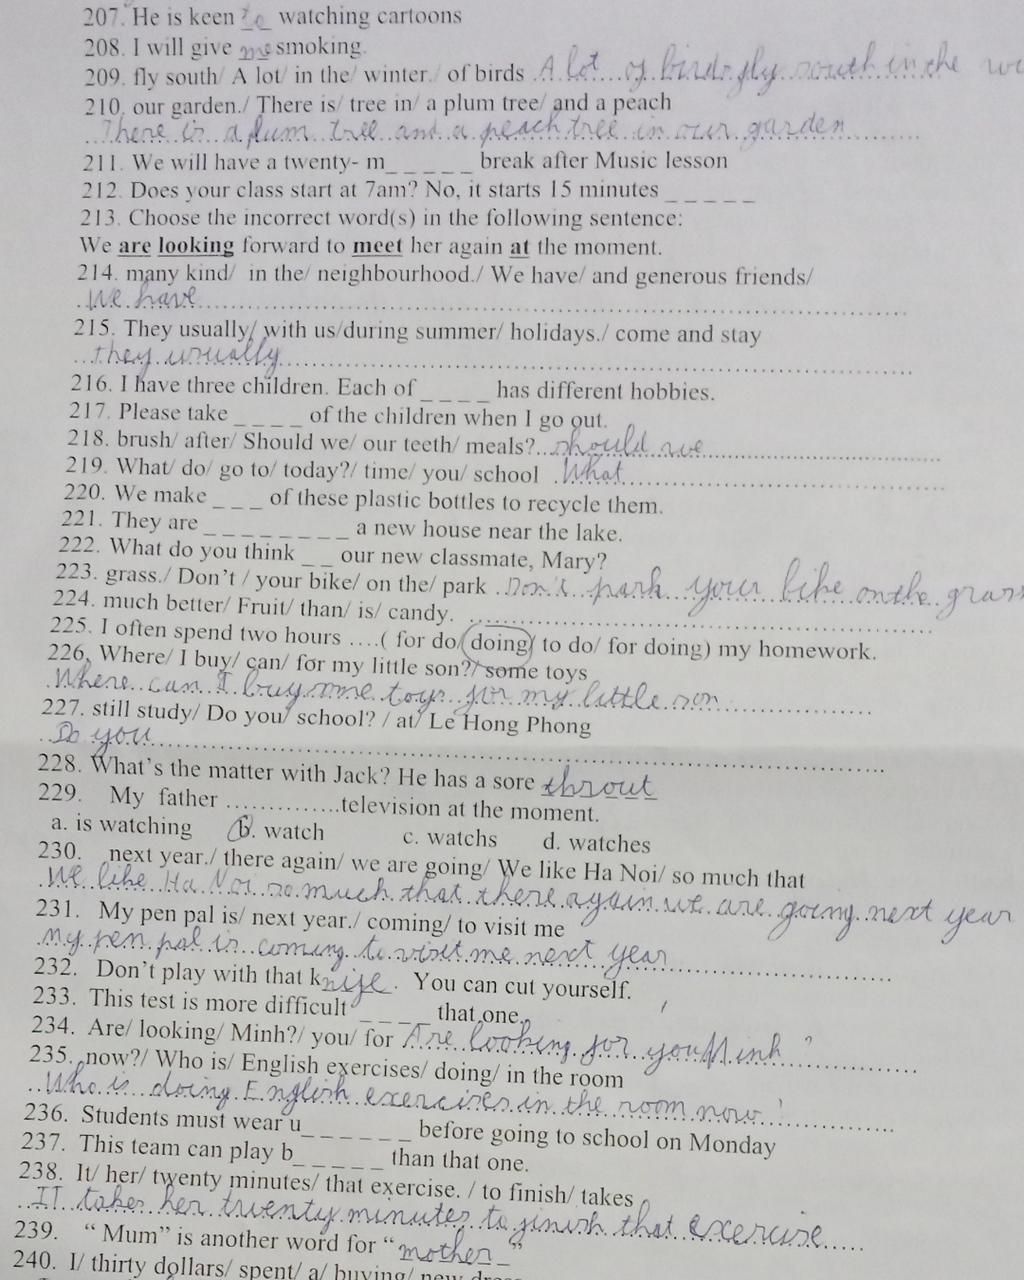 207. He is keen to watching cartoons
208. I will give me smoking.
209. fly south/ A lot/ in the/ winter./ of birds A lot of birds fly south in the
210. our garden./ There is/ tree in/ a plum tree/ and a peach
There is a plum tree and a peach tree in our garden
211. We will have a twenty- m_ _ _ _ _ break after Music lesson
212. Does your class start at 7am? No, it starts 15 minutes _ _ _ _ _
213. Choose the incorrect word(s) in the following sentence:
We are looking forward to meet her again at the moment.
214. many kind/ in the/ neighbourhood./ We have/ and generous friends/
We have
215. They usually/ with us/during summer/ holidays./ come and stay
they usually
216. I have three children. Each of _ _ _ _ has different hobbies.
217. Please take _ _ _ _ of the children when I go out.
218. brush/ after/ Should we/ our teeth/ meals? should we
219. What/ do/ go to/ today?/ time/ you/ school What
220. We make _ _ _ of these plastic bottles to recycle them.
221. They are _ _ _ _ _ _ _ _ a new house near the lake.
222. What do you think _ _ our new classmate, Mary?
223. grass./ Don't / your bike/ on the/ park Don't park your bike on the grass
224. much better/ Fruit/ than/ is/ candy.
225. I often spend two hours ....( for do/ doing/ to do/ for doing) my homework.
226. Where/ I buy/ can/ for my little son?/ some toys
Where can I buy some toys for my little son
227. still study/ Do you/ school? / at/ Le Hong Phong
Do you
228. What's the matter with Jack? He has a sore throut
229. My father .............television at the moment.
a. is watching b. watch c. watchs d. watches
230. next year./ there again/ we are going/ We like Ha Noi/ so much that
We like Ha Noi so much that there again we are going next year
231. My pen pal is/ next year./ coming/ to visit me
My pen pal is coming to visit me next year
232. Don't play with that knife. You can cut yourself.
233. This test is more difficult _ _ _ _ that one.
234. Are/ looking/ Minh?/ you/ for Are looking for you Minh ?
235. now?/ Who is/ English exercises/ doing/ in the room
Who is doing English exercises in the room now ?
236. Students must wear u_ _ _ _ _ _ before going to school on Monday
237. This team can play b_ _ _ _ _ than that one.
238. It/ her/ twenty minutes/ that exercise. / to finish/ takes
IT takes her twenty minutes to finish that exercise
239. " Mum" is another word for "mother_"
240. I/ thirty dollars/ spent/ a/ buying/ new dress